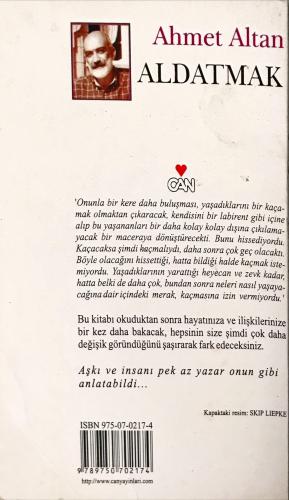 Ahmet Altan
ALDATMAK
CAN
'Onunla bir kere daha buluşması, yaşadıklarını bir kaça-
mak olmaktan çıkaracak, kendisini bir labirent gibi içine
alıp bu yaşananları bir daha kolay kolay dışına çıkılama-
yacak bir maceraya dönüştürecekti. Bunu hissediyordu.
Kaçacaksa şimdi kaçmalıydı, daha sonra çok geç olacaktı.
Böyle olacağını hissettiği, hatta bildiği halde kaçmak iste-
miyordu. Yaşadıklarının yarattığı heyecan ve zevk kadar,
hatta belki de daha çok, bundan sonra neleri nasıl yaşaya-
cağına dair içindeki merak, kaçmasına izin vermiyordu.'
Bu kitabı okuduktan sonra hayatınıza ve ilişkilerinize
bir kez daha bakacak, hepsinin size şimdi çok daha
değişik göründüğünü şaşırarak fark edeceksiniz.
Aşkı ve insanı pek az yazar onun gibi
anlatabildi...
Kapaktaki resim: SKIP LIEPKE
ISBN 975-07-0217-4
9 789750 702174
http://www.canyayinlari.com